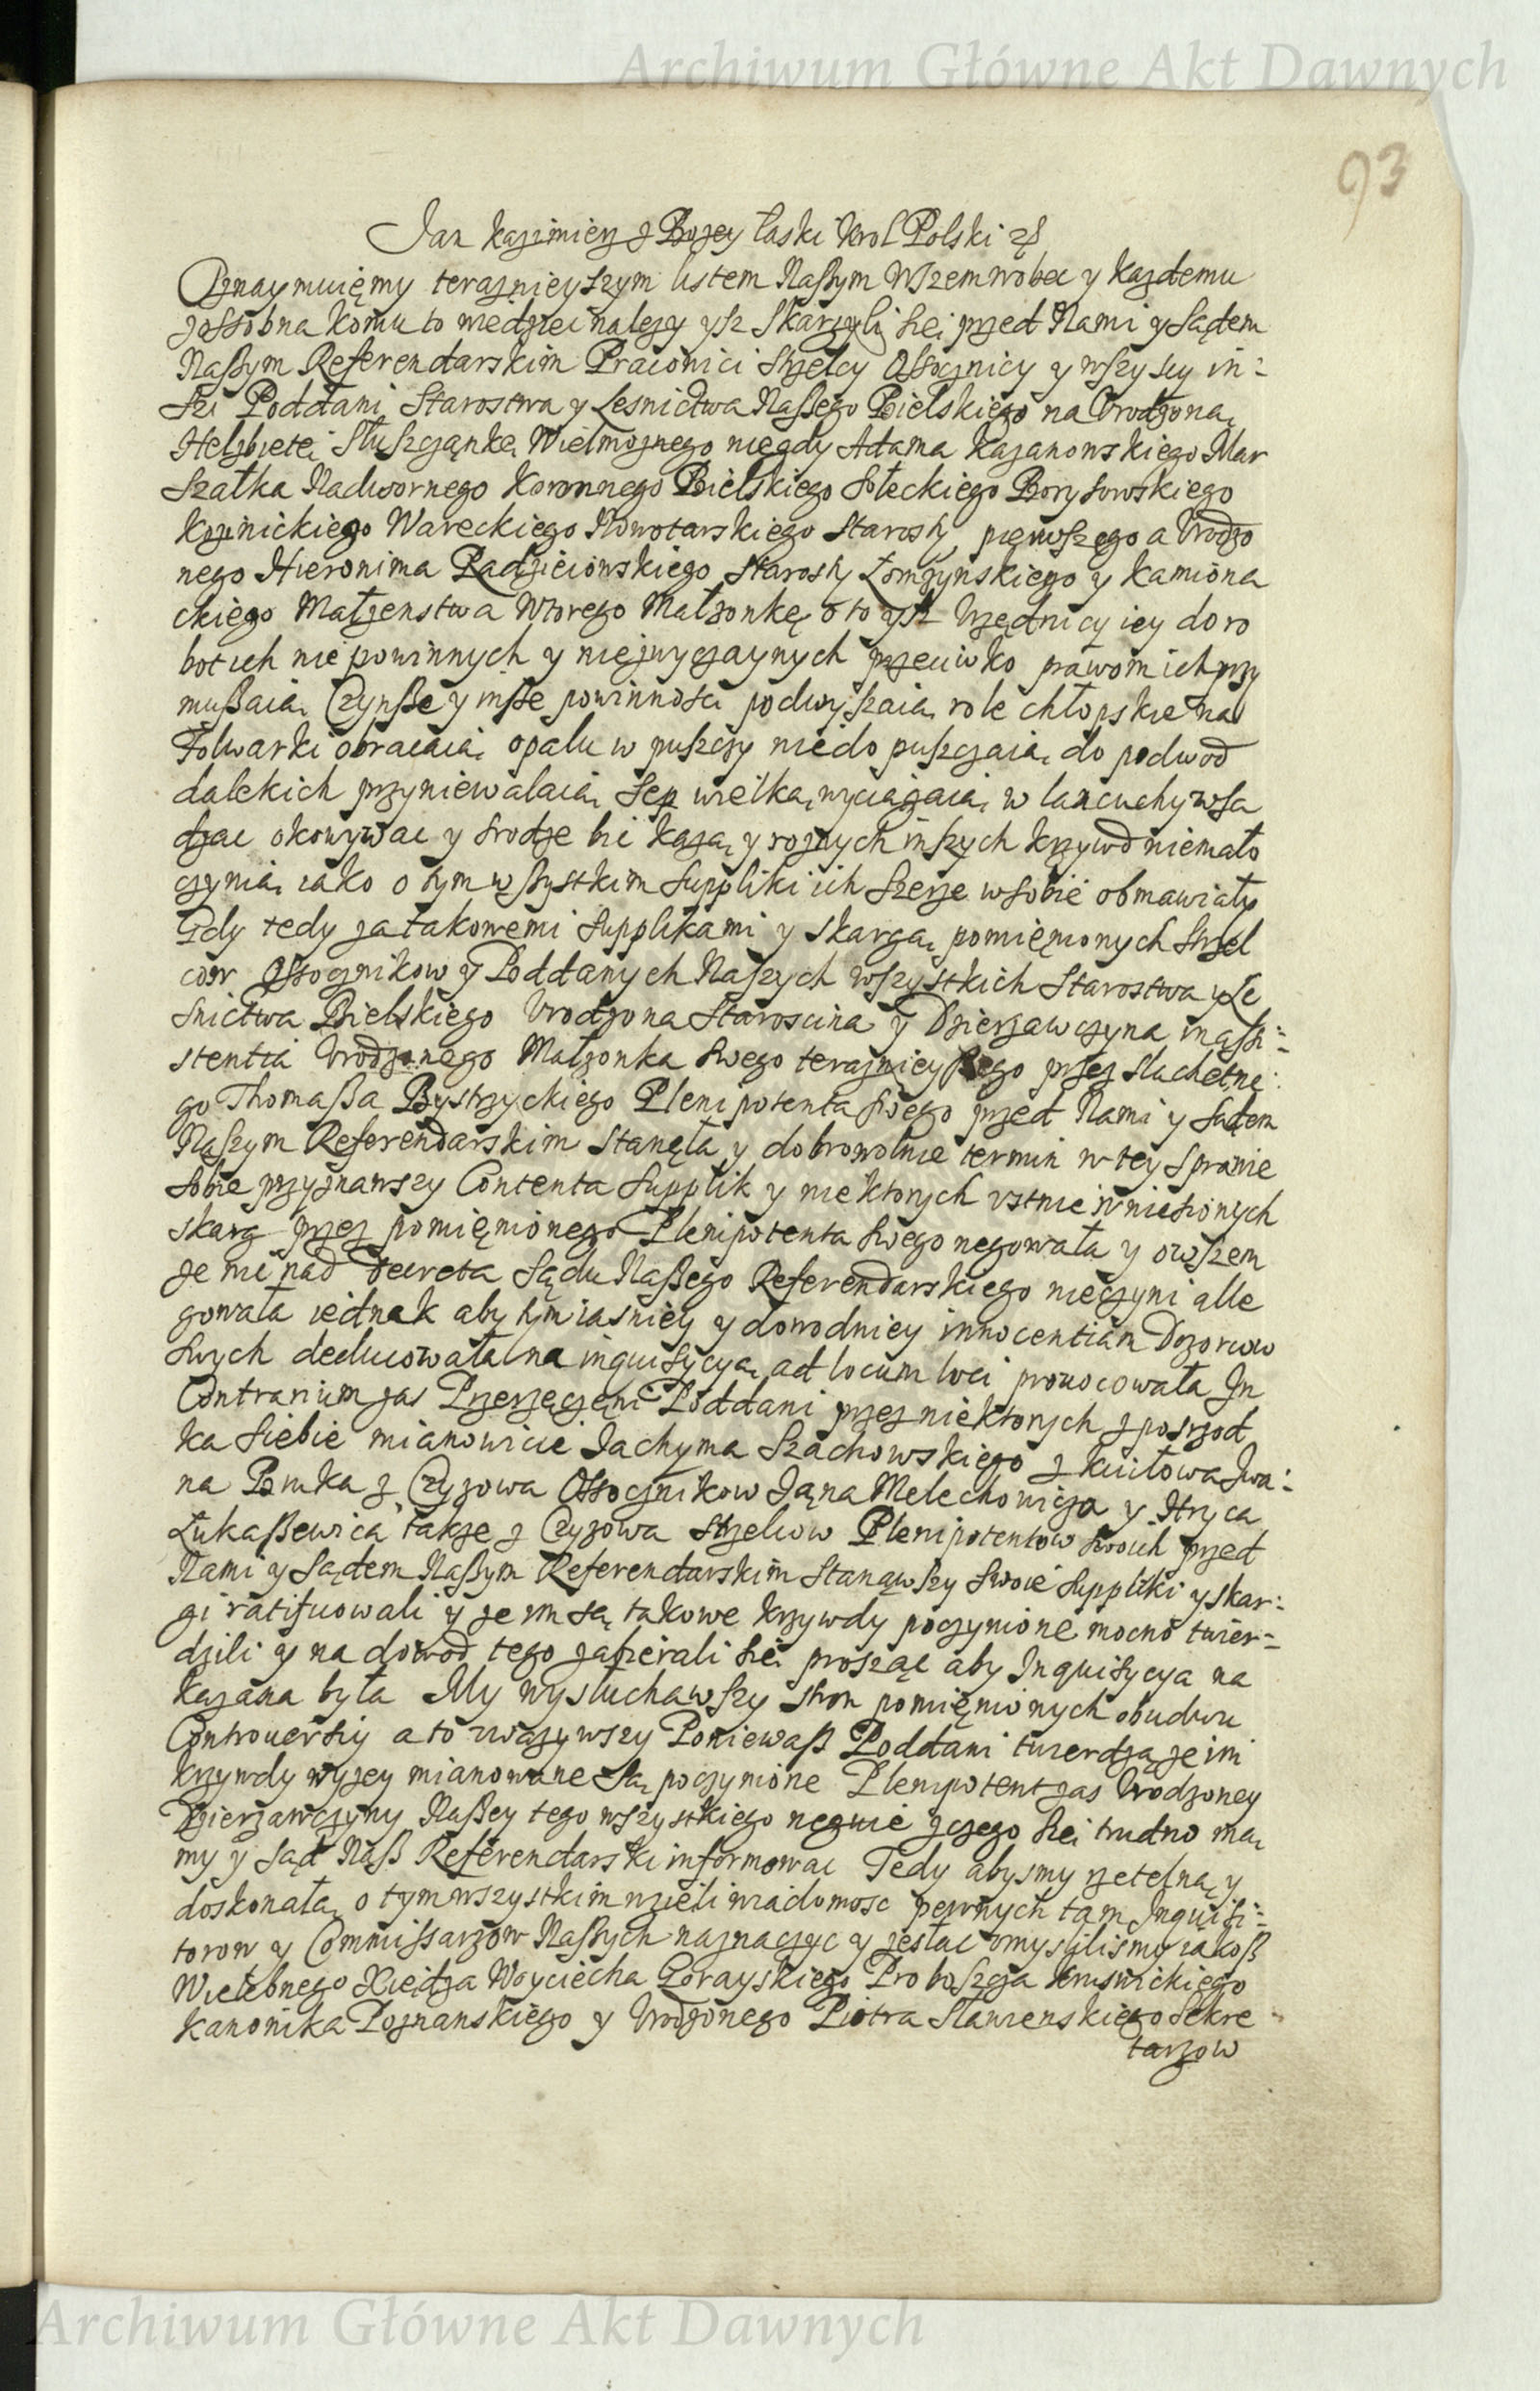 Archiwum Główne Akt Dawnych
93
Jan Kazimierz z Bozey łaski Krol Polski etc
Oznaymuięmy teraznieyszym listem Naßym Wszem wobec y kazdemu
zossobna komu to wiedziec nalezy ysz skarzyli się przed Nami y Sądem
Naßym Referendarskim Pracowici Strzelcy Ossocznicy y wszyscy in=
szi Poddani Starostwa y Lesnictwa Naßego Bielskiego na Vrodzoną
Helzbietę Słuszczankę Wielmoznego niegdy Adama Kazanowskiego Mar
szałka Nadwornego Koronnego Bielskiego Soleckiego Borysowskiego
Kozinickiego Wareckiego Nowotarskiego Starosty pięrwszego a Vrodzo
nego Hieronima Radzieiowskiego Starosty Łomzynskiego y Kamiona
ckiego Małzenstwa Wtorego Małzonkę o to ysz Vrzędnicy iey do ro
bot ich nie powinnych y niezwyczaynych przeciwko prawom ich przy
mußaią Czynße y inße powinnosci podwyszaią role chłopskie na
Folwarki obracaią opału w puszczy niedopuszczaią do podwod
dalekich przyniewalaią sep wielką wyciągaią w lancuchy wsa
dzac okowywac y srodze bic kazą y roznych inszych krzywd niemało
czynią iako o tym wßystkim Suppliki ich szerze w sobie obmawiały
Gdy tedy za takowemi Supplikami y skargą pomięnionych Strzel
cow Ossocznikow y Poddanych Naszych wszystkich Starostwa y Le
snictwa Bielskiego Vrodzona Staroscina y Dzierzawczyna in assi=
stentia Vrodzonego Małzonka swego teraznieyßego przez slachetne
go Thomaßa Bystrzyckiego Plenipotenta swego przed Nami y Sądem
Naszym Referendarskim stanęła y dobrowolnie termin w tey sprawie
sobie przyznawszy Contenta Supplik y niektorych vstnie wniesionych
skarg przez pomięnionego Plenipotenta swego negowała y owszem
ze nic nad Decreta Sądu Naßego Referendarskiego nieczyni alle
gowała iednak aby tym iasniey y dowodniey innocentiam Dozorcow
swych deducowała na inquisycyą ad locum loci prouocowała In
Contrarium zas Przerzęczęni Poddani przez niektorych z posrzod
ka siebie mianowicie Jachyma Szachowskiego z Kuitowa Iwa=
na Bruka z Czyzowa Ossocznikow Jąna Melechowicza y Hryca
Łukaßewica takze z Czyzowa Strzelcow Plenipotentow swoich przed
Nami y Sądem Naßym Referendarskim stanąwszy swoie Suppliki y skar=
gi ratificowali y ze im są takowe krzywdy poczynione mocno twier=
dzili y na dowod tego zabierali się prosząc aby Inquisycya na
kazana była My wysłuchawszy stron pomięnionych obudwu
Controuersiy a to vwazywszy Poniewaß Poddani twierdzą ze im
krzywdy wyzey mianowane są poczynione Plenipotent zas Vrodzoney
Dzierzawczyny Naßey tego wszystkiego neguie z czego się trudno ma
my y Sąd Naß Referendarski informowac Tedy abysmy rzetelną y
doskonałą o tym wszystkim wzieli wiadomosc pewnych tam Inquisi=
torow y Commissarzow Naßych naznaczyc y zesłac vmyslilismy iakoß
Wielebnego Xiędza Woyciecha Gorayskiego Proboszcza Kruswickiego
Kanonika Poznanskiego y Vrodzonego Piotra Slawienskiego Sekre
tarzow
Archiwum Główne Akt Dawnych